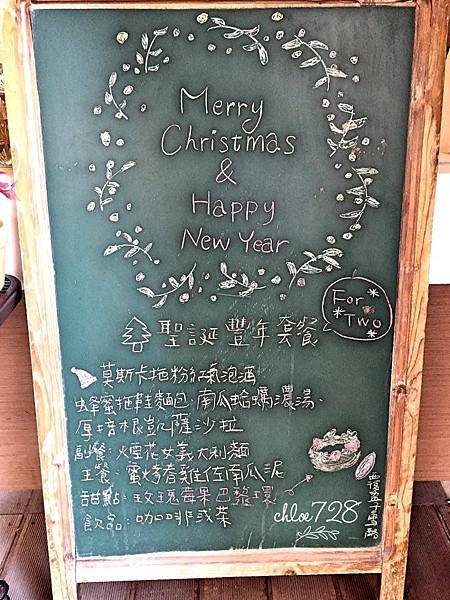 Merry
Christmas
&
Happy
New Year
For
Two
聖誕豐年套餐
莫斯卡拖粉紅氣泡酒
蜂蜜拖鞋麵包.南瓜蛤蠣濃湯.
厚培根凱薩沙拉
副餐:煙花女義大利麵
主餐:蜜烤春雞佐南瓜泥
甜點:玫瑰莓果巴黎環
飲品:咖啡或茶
chloe728